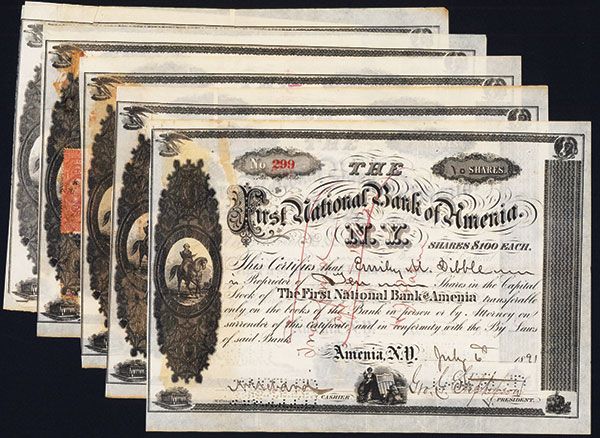 No. 299
THE
10 SHARES
First National Bank of Amenia.
N.Y.
SHARES $100 EACH.
This Certifies that Emily M. Dibble
is Proprietor of Ten Shares in the Capital
Stock of The First National Bank of Amenia transferable
only on the books of the Bank in person or by Attorney on
surrender of this Certificate and in conformity with the By Laws
of said Bank
Amenia, N.Y. July 6th 1891
CASHIER
PRESIDENT.